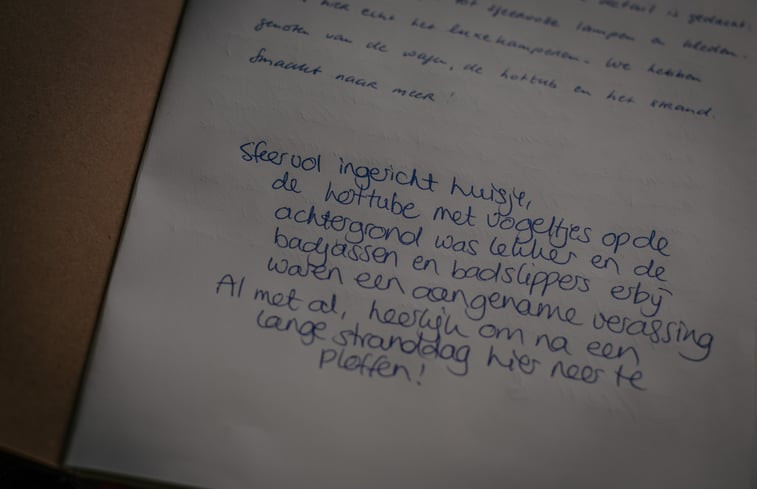 detail is gedacht:
tot sfeervolle lampen en kleden.
hier echt het luxekamperen. We hebben
genoten van de wafen, de hottub en het strand.
Smaakt naar meer!
Sfeervol ingericht huisje,
de hottube met vogeltjes op de
achtergrond was lekker en de
badjassen en badslippers erbij
waren een aangename verassing
Al met al, heerlijk om na een
lange stranddag hier neer te
ploffen!